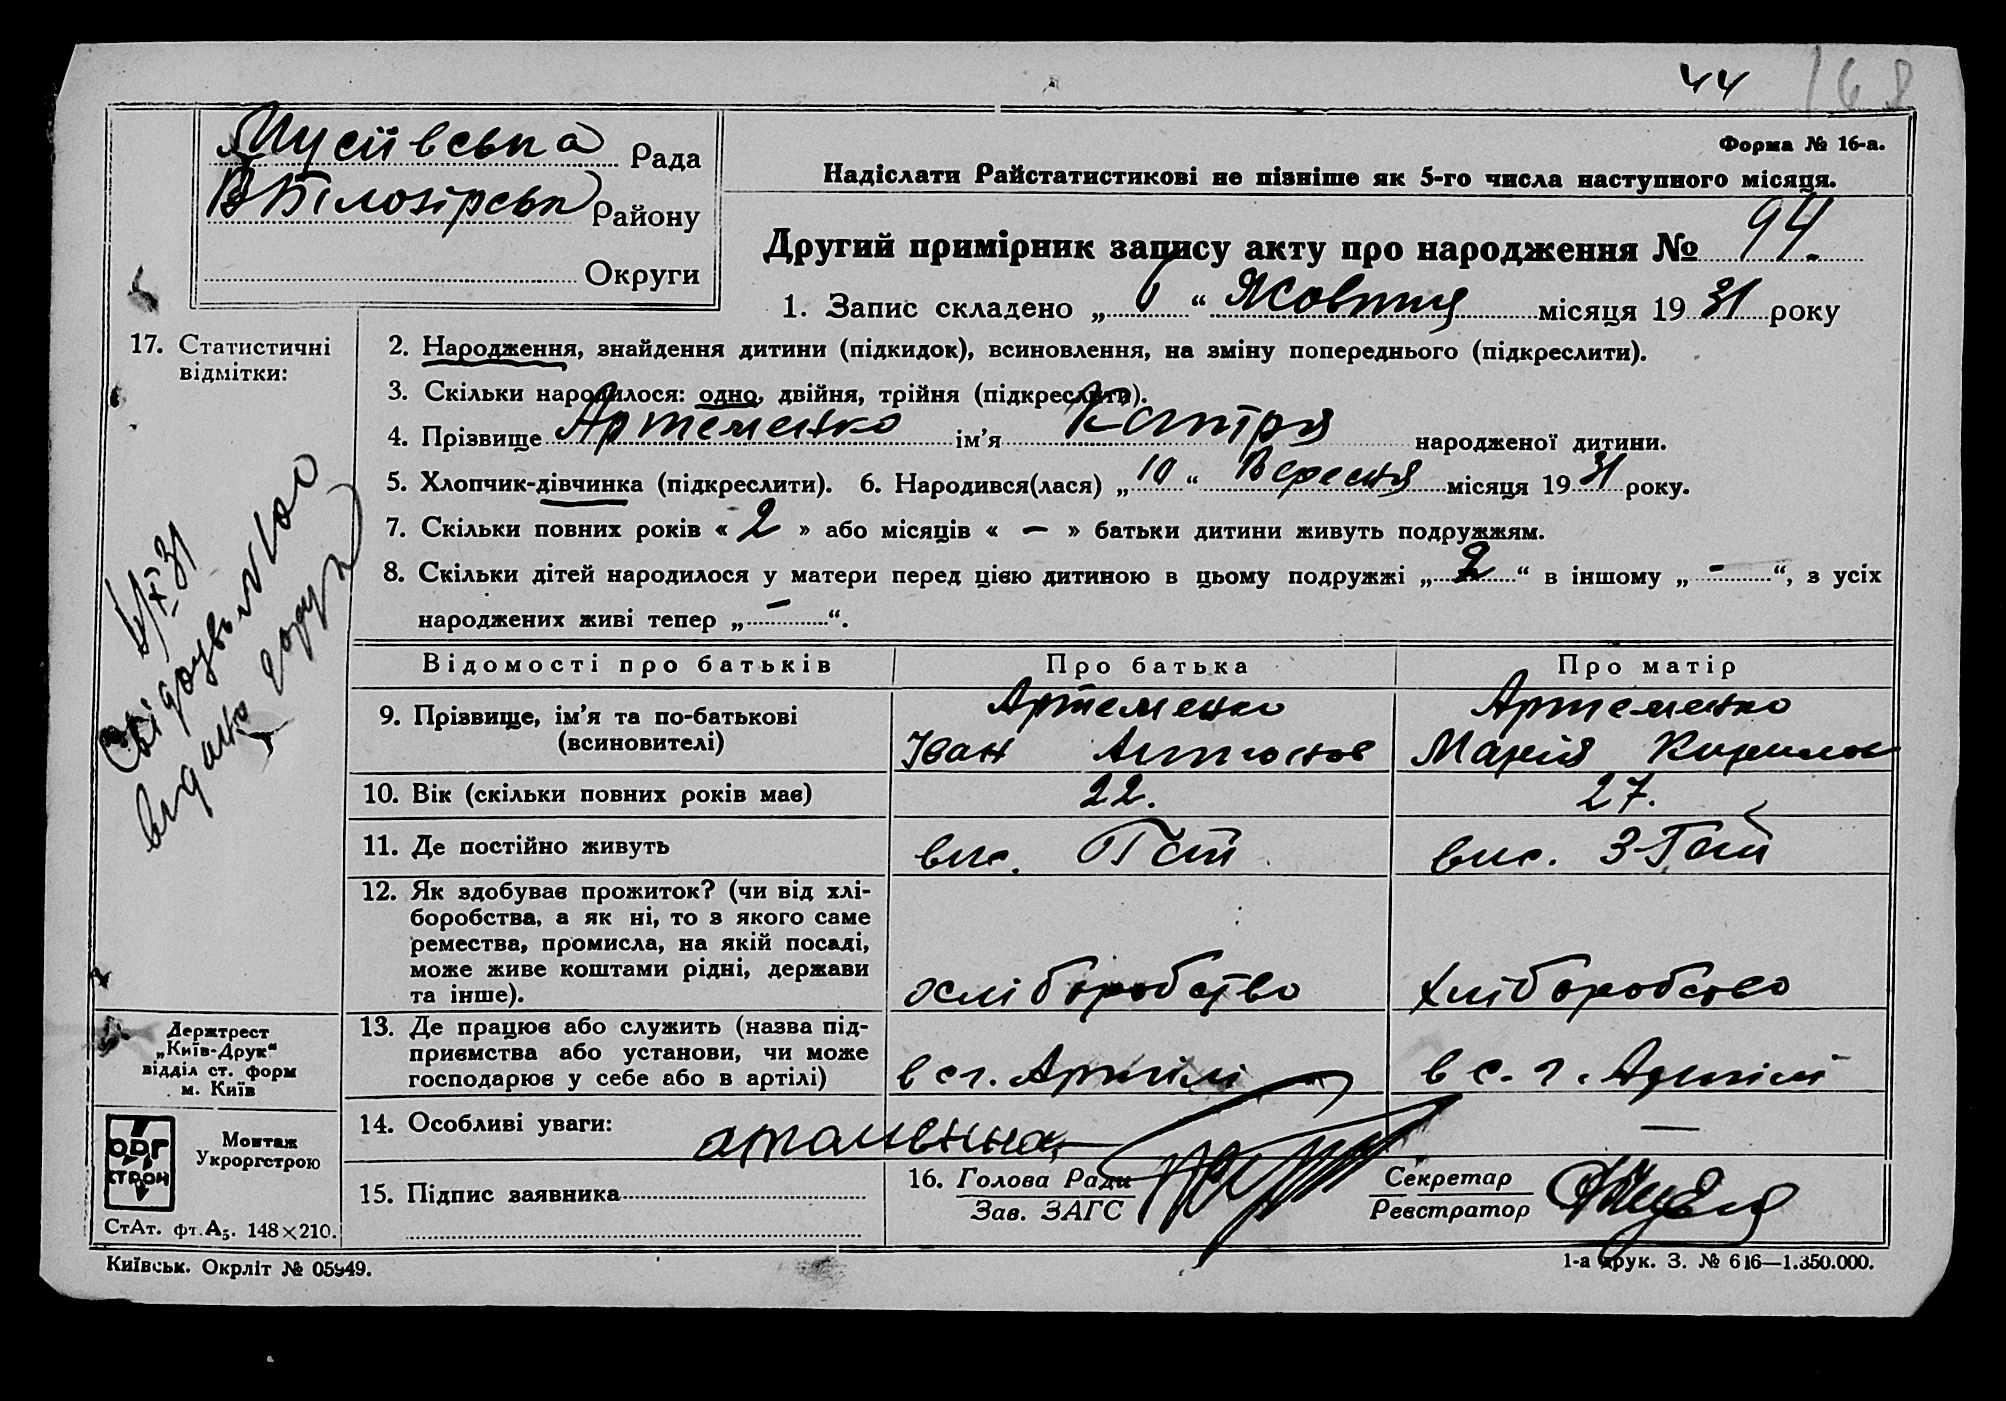 44 168
Мусіївська Рада
В Білозірськ Району
Округи
Форма № 16-а.
Надіслати Райстатистикові не пізніше як 5-го числа наступного місяця.
Другий примірник запису акту про народження № 94.
1. Запис складено „ “ Жовтня місяця 1931 року
17. Статистичні
відмітки:
2. Народження, знайдення дитини (підкидок), всиновлення, на зміну попереднього (підкреслити).
3. Скільки народилося: одно, двійня, трійня (підкреслити).
4. Прізвище Артеменко ім’я Катря народженої дитини.
5. Хлопчик-дівчинка (підкреслити). 6. Народився(лася) „10“ Вересня місяця 1931 року.
7. Скільки повних років « 2 » або місяців « – » батьки дитини живуть подружжям.
8. Скільки дітей народилося у матери перед цією дитиною в цьому подружжі „2“ в іншому „-“, з усіх
народжених живі тепер „–“.
X 31
видано
Відомості про батьків Про батька Про матір
9. Прізвище, ім’я та по-батькові
(всиновителі)
Артеменко
Іван Антонов
Артеменко
Марія Кирилов
10. Вік (скільки повних років має) 22. 27.
11. Де постійно живуть вис. Гай вис. З-Гай
12. Як здобуває прожиток? (чи від хлі-
боробства, а як ні, то з якого саме
ремества, промисла, на якій посаді,
може живе коштами рідні, держави
та інше).
хліборобство хліборобство
13. Де працює або служить (назва під-
приємства або установи, чи може
господарює у себе або в артілі)
в с г. Артілі в с. г. Артілі
14. Особливі уваги: —
15. Підпис заявника
16. Голова Ради
Зав. ЗАГС
Секретар
Реєстратор
Держтрест
„Київ-Друк“
відділ ст. форм
м. Київ
ОРГ
СТРОМ
Монтаж
Укроргстрою
СтАт. фт. А5. 148×210.
Київськ. Окрліт № 05949.
1-а друк. З. № 616—1.350.000.